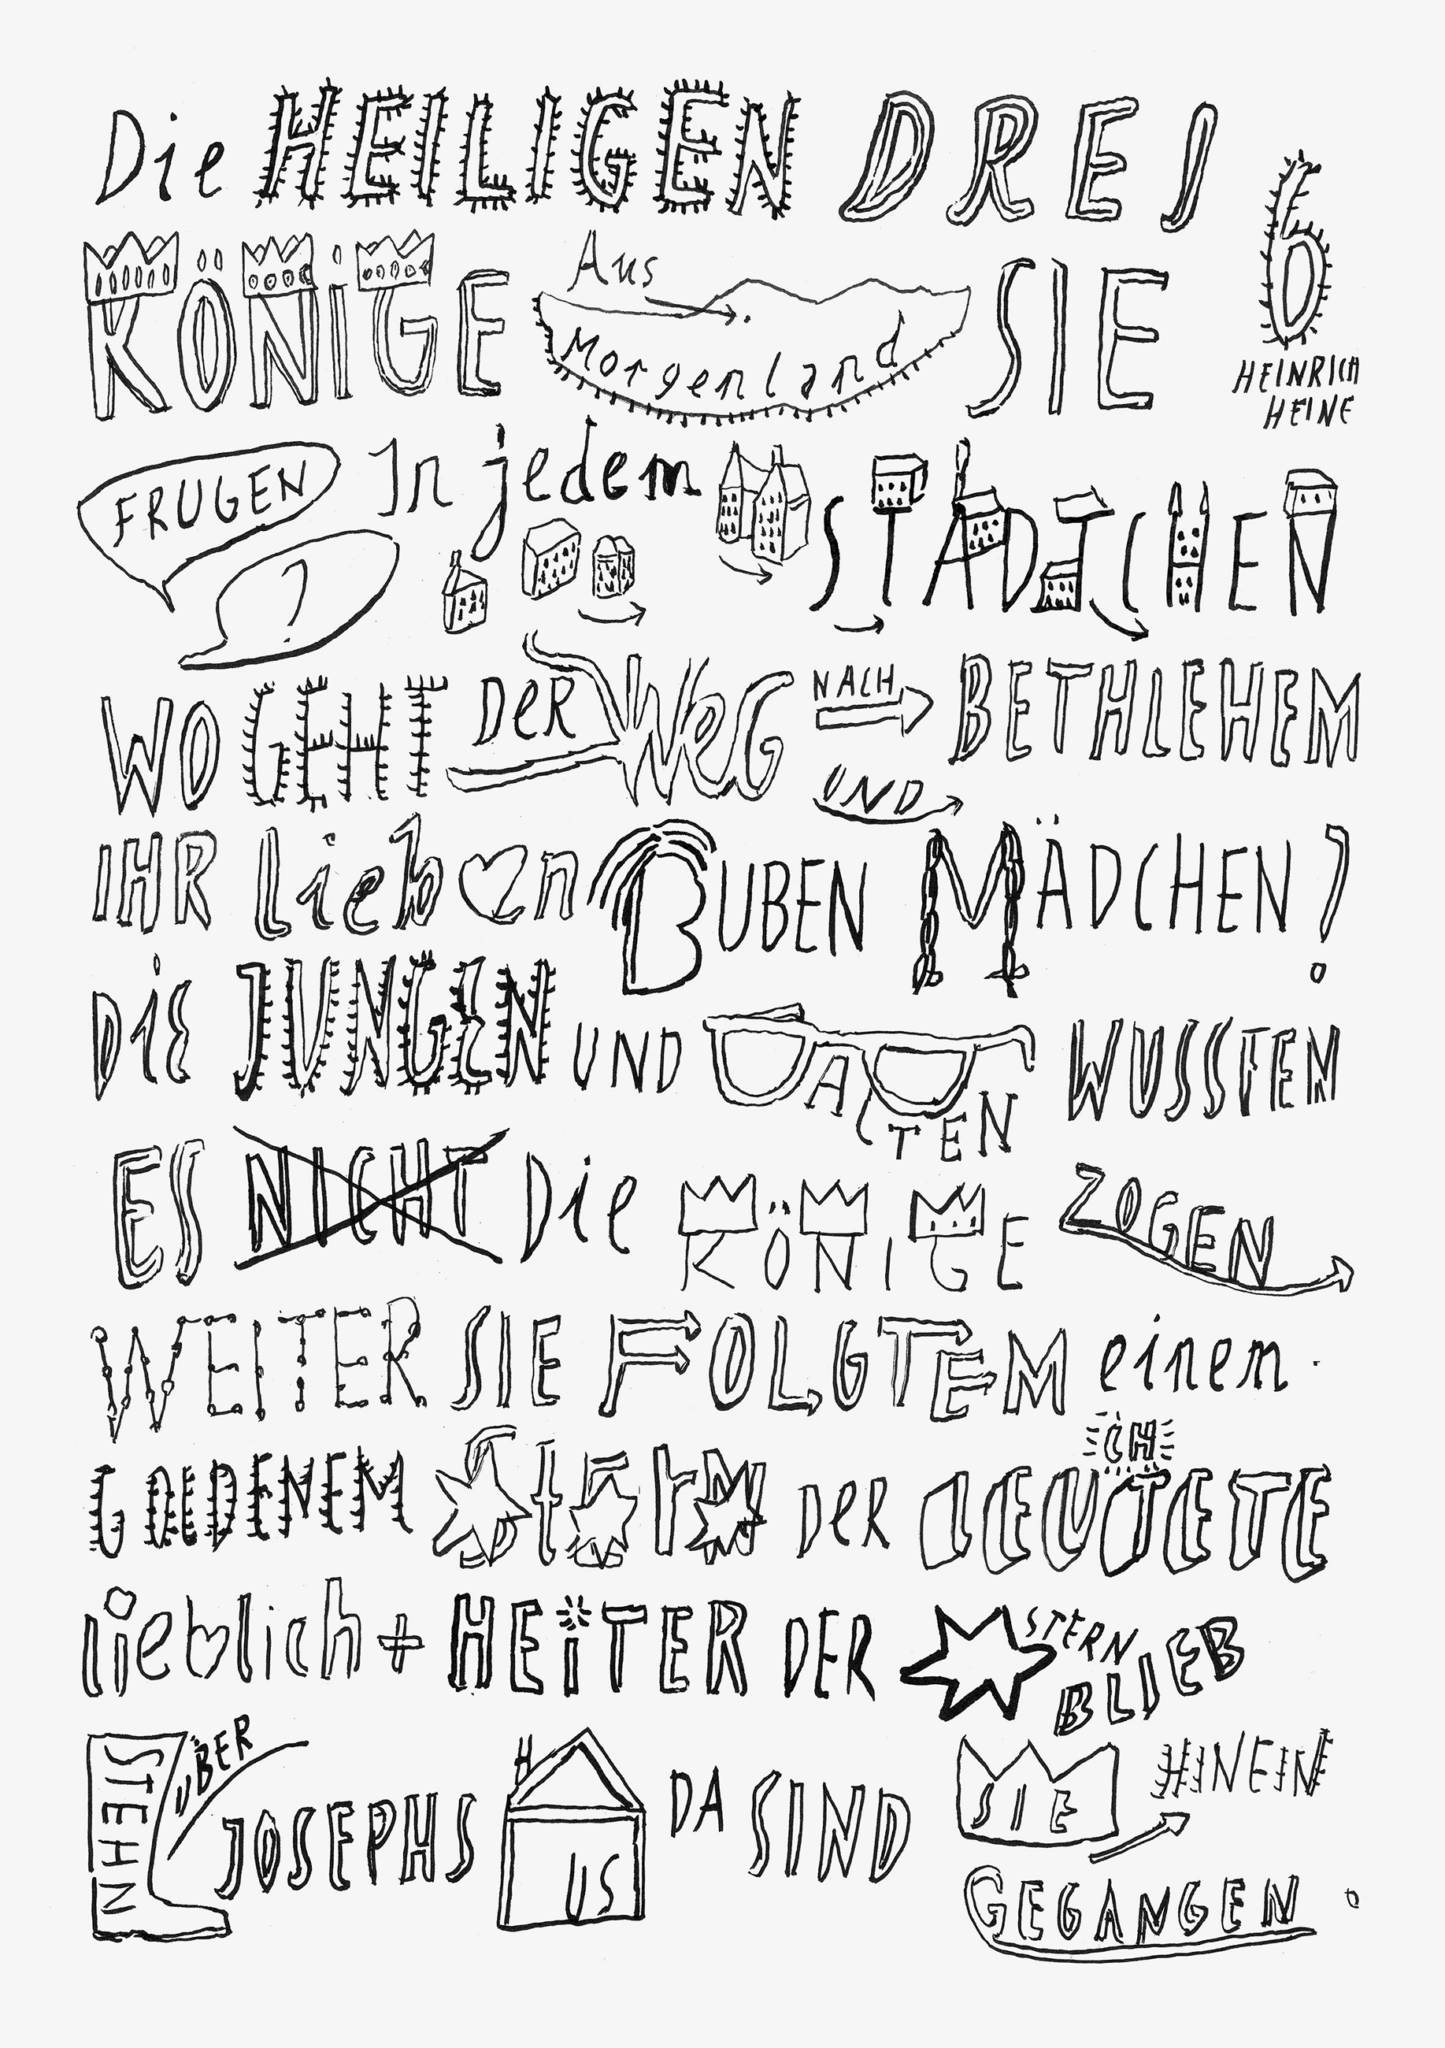 Die HEILIGEN DREI
KÖNiGE Aus Morgenland SIE
6
HEINRICH
HEINE
FRUGEN In jedem STÄDTCHEN
?
WO GEHT DER WEG NACH BETHLEHEM
UND
IHR Lieben BUBEN MÄDCHEN?
DIE JUNGEN UND ALTEN WUSSTEN
ES NICHT Die KÖNIGE ZOGEN
WEITER SIE FOLGTEM einen.
GOLDENEM StErN DER LEUTETE
ICH
lieblich + HEITER DER STERN BLIEB
STEHN ÜBER JOSEPHS HAUS DA SIND SIE HINEIN
GEGANGEN.